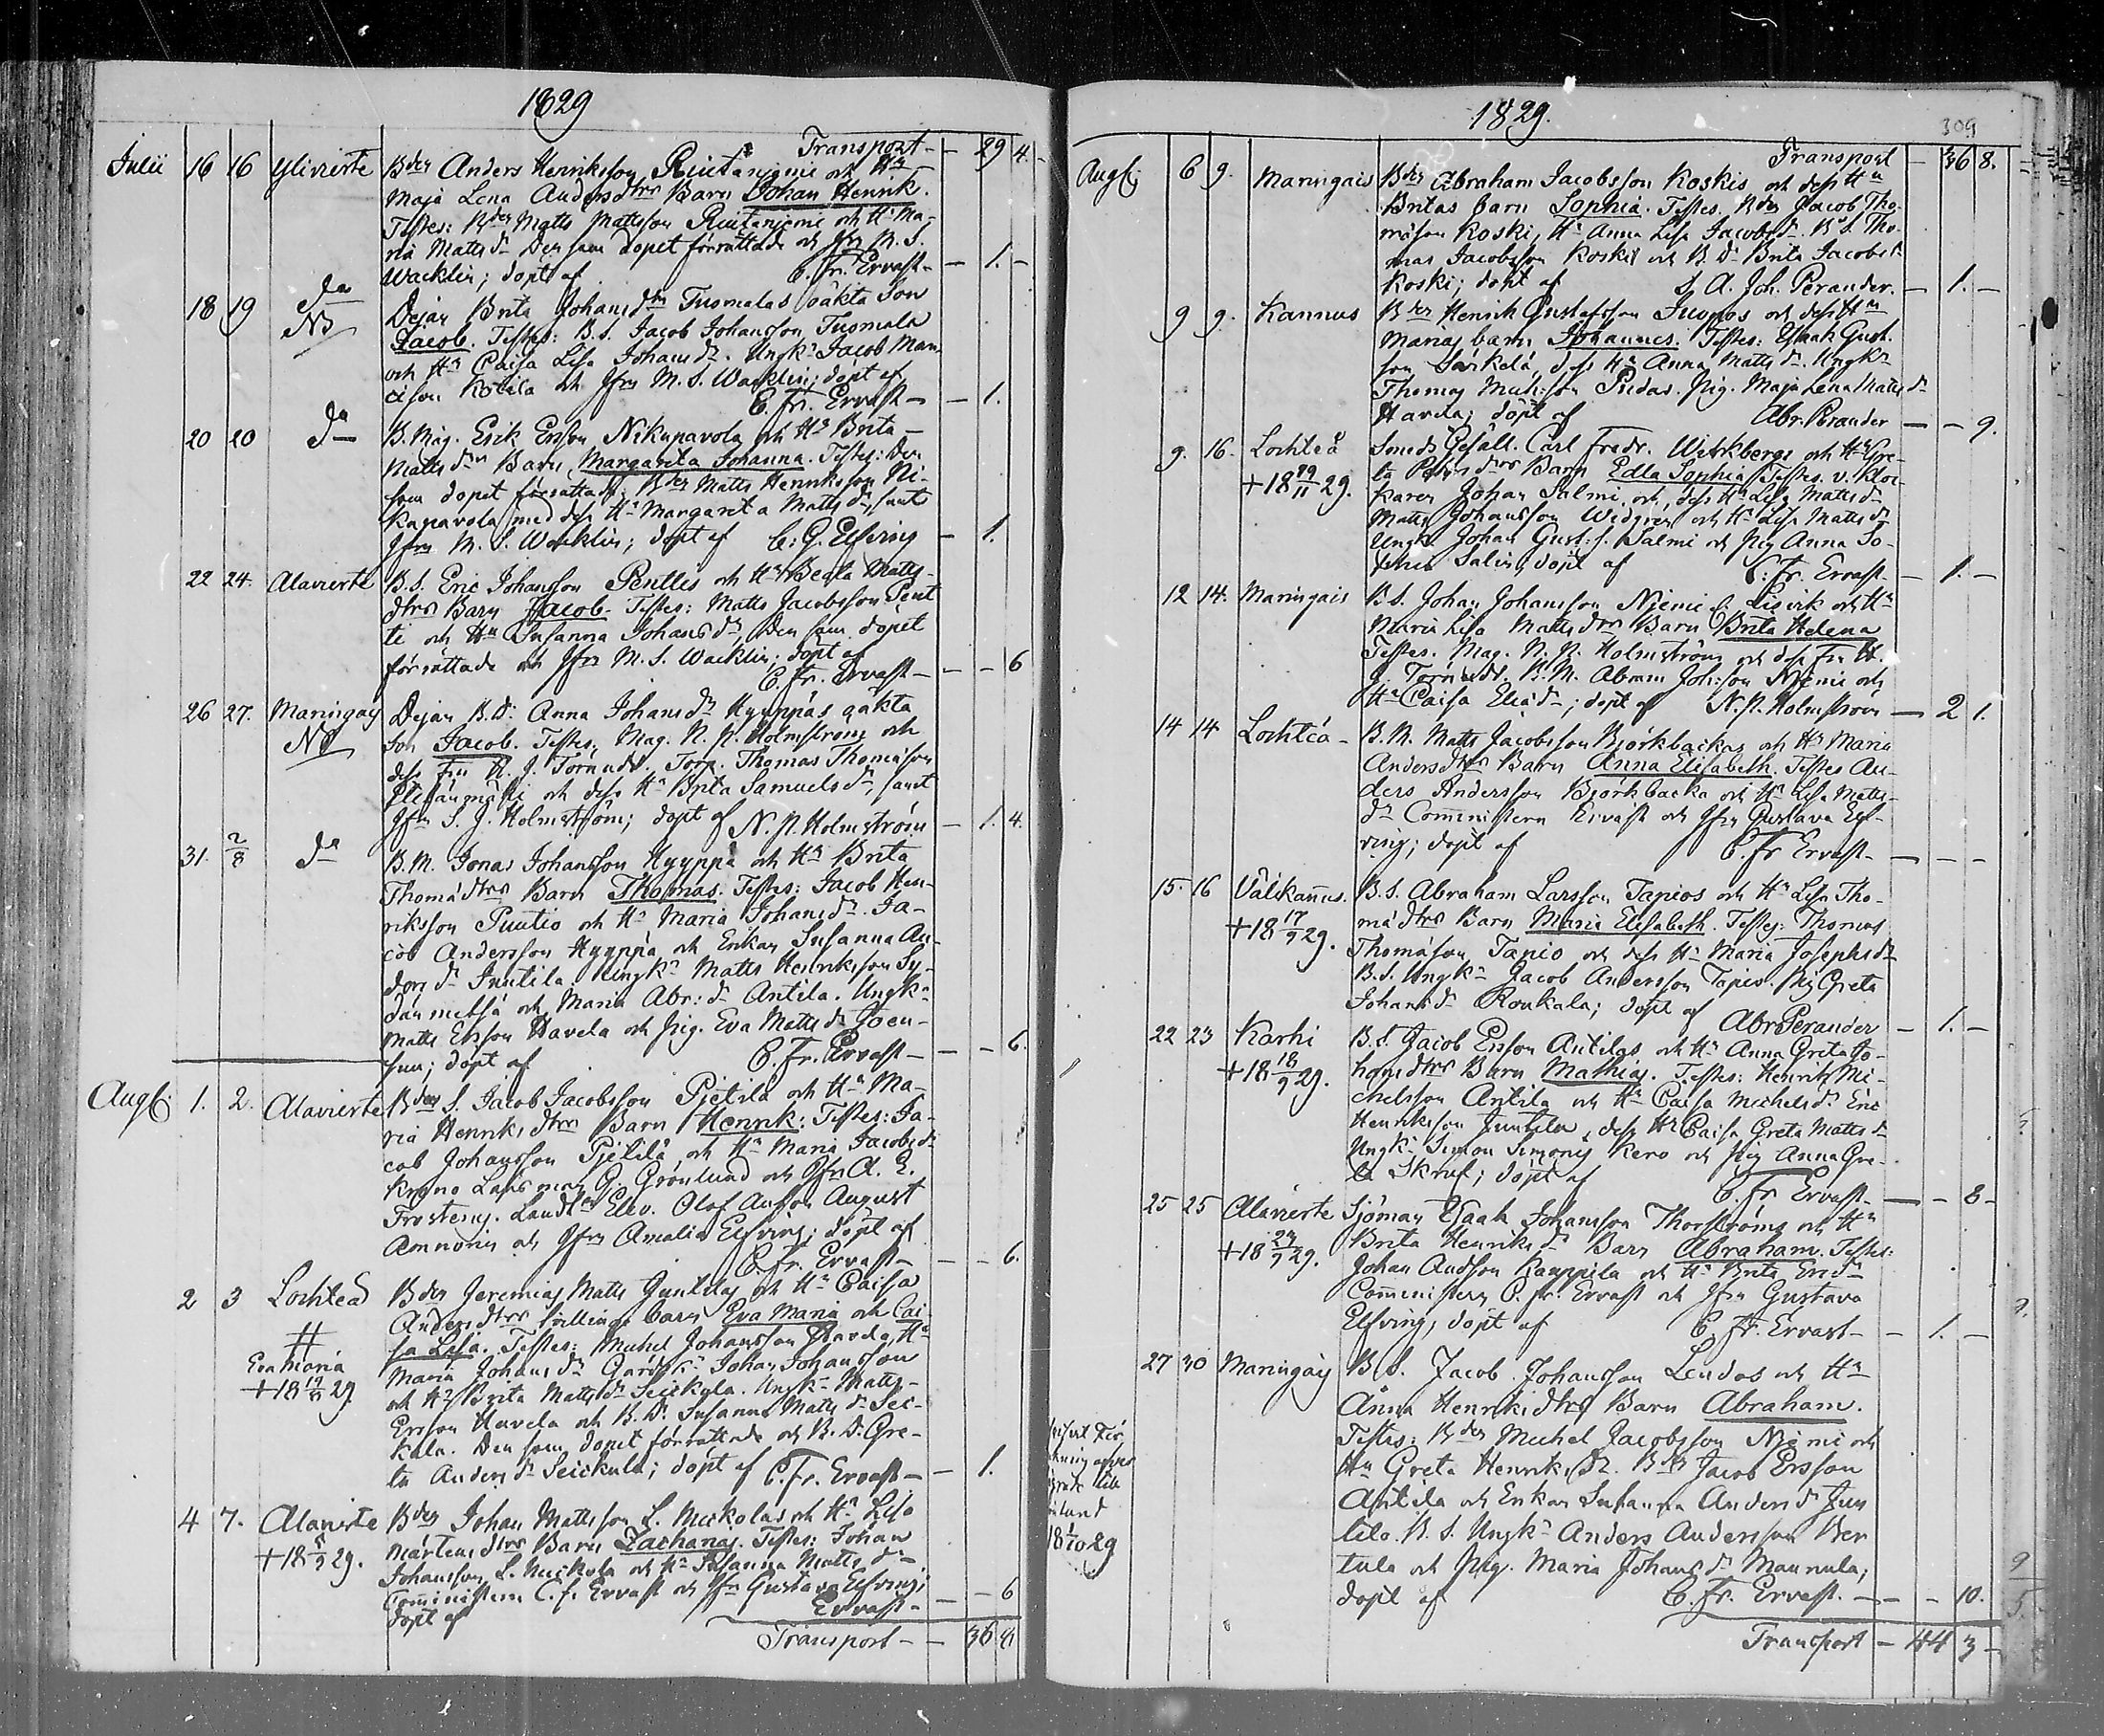 1829
Transport - - 29 4.
Julii 16 16 Ylivierte Bder Anders Henriksson Riutaniemi och Hn
Maja Lena Andersdtrs Barn Johan Henrik.
Testes: Bder Matts Mattsson Riutaniemi och Hu Ma-
ria Mattsdr Den som dopet förrättade och Jfrn M. S.
Wacklin; döpt af C. Fr. Ervast - - 1. -
18 19 do NB Dejan Brita Johansdtrs Tusmalas oäkta Son
Jacob. Testes: B.S. Jacob Johansson Tusmala
och Hu Caisa Lisa Johansdr. Ungkn Jacob Man-
sson Kotila och Jfrn M. S. Wacklin; döpt af
C. Fr. Ervast - - 1.
20 20 do B. Måg. Erik Ersson Nikupavola och Hu Brita
Mattsdtrs Barn Margarita Johanna. Testes: Den
som dopet förrättade, Bder Matts Henriksson Ni-
kupavola med dess Hu Margarita Mattsdr, samt
Jfrn M. S. Wacklin; döpt af C: G. Elfving - 1.
22 24. Alavierte B.S. Eric Johansson Penttis och Hu Beata Matts-
dtrs Barn Jacob. Testes: Matts Jacobsson Pent
ti och Hu Susanna Johansdr, Den som dopet
förrättade och Jfrn M. S. Wacklin; döpt af
C. Fr. Ervast - - - 6
26 27. Maringais NB Dejan B.D. Anna Johansdr Hyyppäs oäkta
Son Jacob. Testes, Mag. N. N. Holmström och
dess Fru H. J. Törnudd. Torp. Thomas Thomasson
och dess Hu Brita Samuelsdr, samt
Jfrn S. J. Holmström; döpt af N. N. Holmström - 1. 4.
31. 2/8 do B.M. Jonas Johansson Hyyppä och Hu Brita
Thomädtrs Barn Thomas. Testes: Jacob Hen-
riksson Puutio och Hu Maria Johansdr. Ja-
cob Andersson Hyyppä och Enkan Susanna An-
dersdr Juutila. Ungkn Matts Henriksson Sy-
dänmetsä och Maria Abr:dr Antila. Ungkn
Matts Ersson Havela och Pig. Eva Mattsdr Joen-
suu; döpt af C. Fr. Ervast - - - 6.
Augt. 1. 2. Alavierte Bders S. Jacob Jacobsson Pietilä och Hu Ma-
ria Henriksdtrs Barn Henrik: Testes: Ja-
cob Johansson Pietilä och Hu Maria Jacobsdr
Krono Länsman G. Grönlund och Jfrn A. E.
Frosterus. Landtm Elev. Olof Anton August
Ammorin och Jfrn Amalia Elfving; döpt af
C. Fr. Ervast - - - 6.
2 3 Lochteå Bder Jeremias Matts Juntilas och Hu Caisa
Andersdtrs tvillinge barn Eva Maria och Cai-
sa Lisa. Testes: Michel Johansson Havela, Hu
Eva Maria Maria Johansdr Gårdskn Johan Johansson
+ 18 29. och Hu Brita Mattsdr Seickula. Ungkn Matts
Ersson Havela och B.D. Susanna Mattsdr Sei-
kula. Den som dopet förrättade och B.D. Gre-
ta Andersdr Seickula; döpt af C. Fr. Ervast - - 1.
4 7. Alavierte Bder Johan Mattsson L. Mickolas och Hu Lisa
+ 18 29. Mårtensdtrs Barn Zacharias. Testes: Johan
Johansson L. Mickola och Hu Susanna Mattsdr
Comministern C. F. Ervast och Jfrn Gustava Elfving;
döpt af Ervast - - - 6
Transport - - 36 8
1829.
309
Transport - 36 8.
Augt. 6 9. Maringais Bder Abraham Jacobsson Koskis och dess Hu
Britas barn Sophia. Testes. Bder Jacob Tho-
masson Koski, Hu Anna Lisa Jacobsdr B.S. Tho-
mas Jacobsson Koski och B.D. Brita Jacobsdr
Koski; döpt af A. Joh. Perander. - 1. -
9 9. Kannus Bder Henrik Gustafsson Juopos och dess Hu
Marias barn Johannes. Testes: Isaak Gust.
son Särkelä, dess Hu Anna Mattsdr. Ungkn
Thomas Mich:son Pudas. Pig. Maja Lena Mattsdr
Havela; döpt af Abr. Perander - - 9.
9. 16. Lochteå Smeds Gesäll. Carl Fredr. Wirkbergs och Hu Gre-
+ 18 29/11 29. ta Petersdtrs Barn Edla Sophia. Testes. v. Kloc-
karen Johan Salmi, och dess Hu Lisa Mattsdr
Matts Johansson Widgren och Hu Lisa Mattsdr
Ungkn Johan Gust: s. Salmi och Pig Anna So-
phia Salin, döpt af C. Fr. Ervast - 1. -
12 14. Maringais B.S. Johan Johansson Niemi L. Lisvik och Hu
Maria Lisa Mattsdtrs Barn Brita Helena
Testes. Mag. N. N. Holmström och dess Fru H.
J. Törnudd. B.M. Abram Joh:son Niemi och
Hu Caisa Eliädr; döpt af N. N. Holmström - 2 1.
14 14 Lochteå - B.M. Matts Jacobsson Björkbackas och Hu Maria
Andersdtrs Barn Anna Elisabeth. Testes An-
ders Andersson Björkbacka och Hu Lisa Matts-
dr Comministern Ervast och Jfrn Gustava Elf-
ving; döpt af C. Fr Ervast - - - -
15. 16 Välikannus. B.S. Abraham Larsson Tapios och Hu Lisa Tho-
+ 18 17/9 29. mädtrs Barn Maria Elisabeth. Testes: Thomas
Thomasson Tapio och dess Hu Maria Josephsdr
B.S. Ungkn Jacob Andersson Tapio. Pig Greta
Johansdr Roukala; döpt af Abr Perander - 1. -
22 23 Karhi B.S. Jacob Ersson Antilas och Hu Anna Greta Jo-
+ 18 18/9 29. hansdtrs Barn Mathias. Testes: Henrik Mi-
chelsson Antila och Hu Caisa Michelsdr Eric
Henriksson Juntila, dess Hu Caisa Greta Mattsdr
Ungkn Simon Simons Kero och Pig Anna Gre-
ta Skruf; döpt af C. Fr Ervast - - - 8 -
25 25 Alavierte Sjöman Isaak Johansson Thorströms och Hu
+ 18 24/9 29. Brita Henriksdr Barn Abraham. Testes:
Johan Andsson Kauppila och Hu Brita Ericdr
Comministern C. Fr. Ervast och Jfrn Gustava
Elfving, döpt af C. Fr. Ervast - - 1. -
27 30 Maringais B.S. Jacob Johansson Lindos och Hu
Anna Henriksdtrs Barn Abraham.
Testes: Bder Michel Jacobsson Niemi och
Hu Greta Henriksdr. Bder Jacob Ersson
Antila och Enkan Susanna Andersdr Jun
tila. B.S. Ungkn Anders Andersson Ver
tula och Pig. Maria Johansdr Maunula;
döpt af C. Fr. Ervast. - - - 10.
Transport - 44 3 -